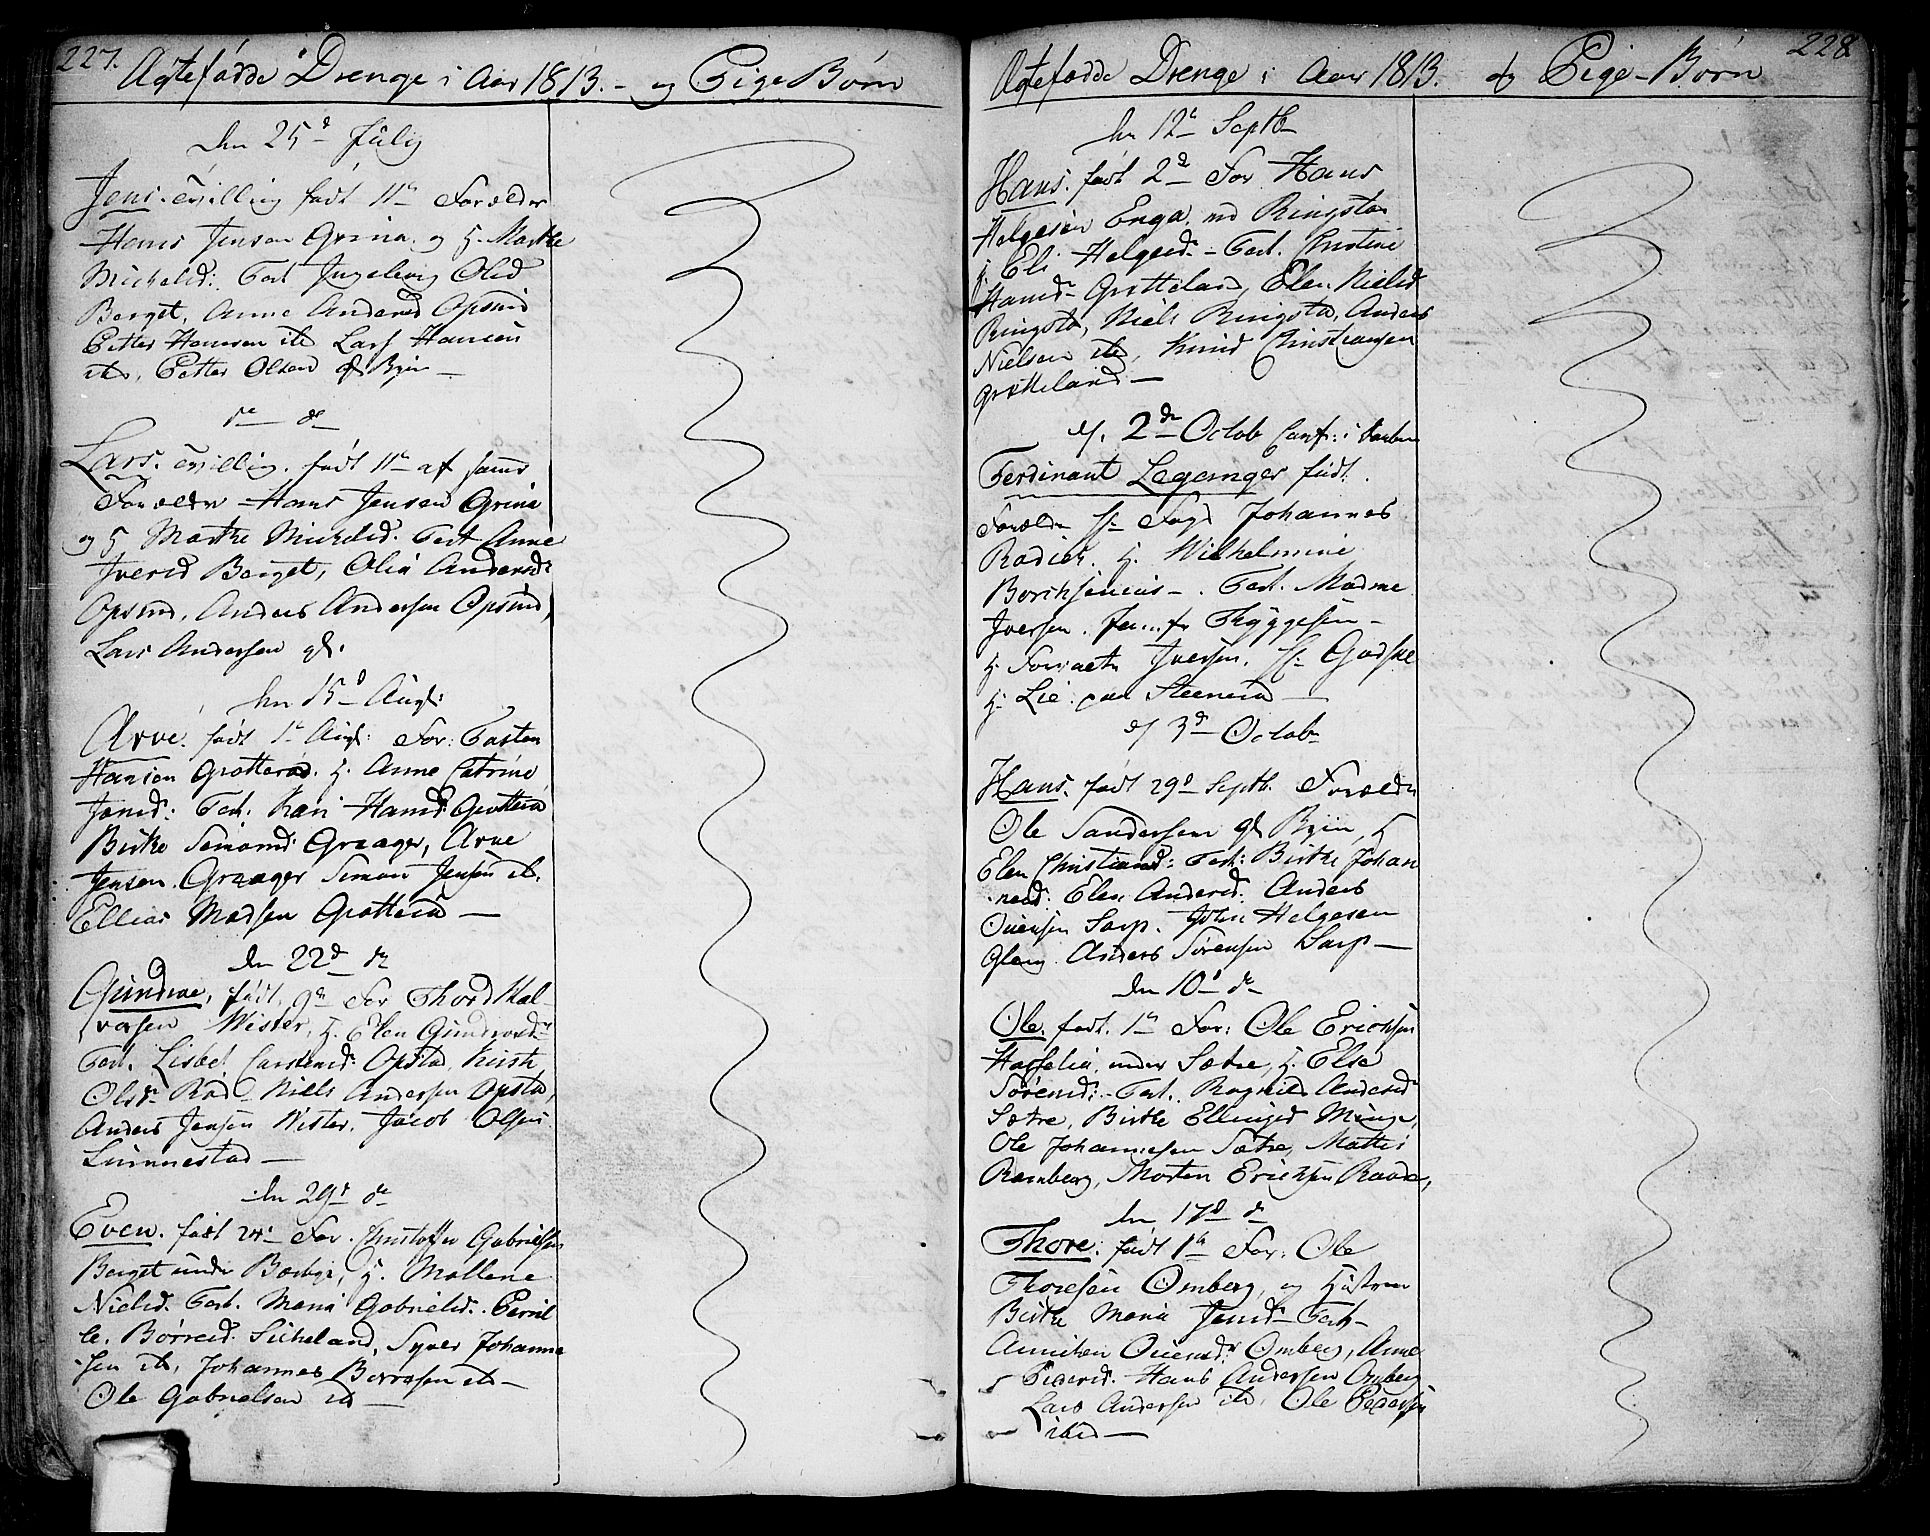 227.
Ægtefødde Drenge i Aar 1813. - og Pige Børn
den 25d July
Jens. Tvilling født 11te Forældre
Hans Jensen Grina og H. Marthe
Michelsd: Test Ingeborg Olsd
Berget, Anne Andersd Opsund
Petter Hansen ibd Lars Hansen
ibd, Petter Olsen Byin -
de de
Lars. Tvilling. født 11te af samme
Forældre Hans Jensen Grina
og H Marthe Michelsd. Test Anne
Iversd Berget, Olia Andersd:
Opsund, Anders Andersen Opsund,
Lars Andersen
den 15d Augt:
Arve. født 1te Augt: For: Tosten
Hansen Grotterød. H. Anne Catrine
Jensd: Test. Kari Hansd: Grotterød
Birthe Simonsd Graager, Arve
Jensen Graager Simon Jensen ib.
Ellias Madsen Grotterød -
den 22d do
Gundroe, født. 9de For Thord Hal-
vorsen Wister, H. Elen Gundrosd
Test. Lisbet Carstensd: Opstad, Kirsti
Olsd. Rød Niels Andersen Opstad,
Anders Jensen Wister. Jacob Olsen
Lunnestad -
den 29d do
Even. født 24d For. Christoffer Gabrielsen
Berget under Borbye, H. Mallene
Nielsd. Test. Maria Gabrielsd. Pernil
le. Børresd. Sikeland, Syver Johanne
sen ib, Johannes Børresen ib -
Ole Gabrielsen ib -
228.
Ægtefødde Drenge i Aar 1813. og Pige-Børn
den 12te Septb
Hans. født 2d For Hans
Helgesen Enga nd Ringstad
H. Eli Helgesd. - Test. Christine
Hansd Grotteland, Elen Nielsd
Ringstad, Niels Ringstad, Anders
Nielsen ibd, Knud Christiansen
Grotteland -
d. 2den Octob Conf: i Kirken
Ferdinant Leganger født
Forældre Hr Fogd Johannes
Radich. H. Wilhelmine
Borchsenius -. Test. Madme
Iversen. Thygesen -
H. Iversen. Hr Godske
H. Lie. Steenerud
d 3d Octob
Hans. født 29d Septb. Forældre
Ole Sandersen Byin, H
Elen Christiansd: Test: Birthe Johan
nesd: Elen Andersd: Anders
Ouensen Sarp. John Helgesen
Gleng. Anders Sørensen Sarp -
den 10d do
Ole. født. 1te For: Ole Erichsen
Hasselia, under Sætre, H. Else
Sørensd: Test. Ragnild Andersd
Sætre, Birthe Ellingsd Minge,
Ole Johannesen Sætre, Mathis
Ramberg, Morten Erichsen Raade,
den 17d do
Thore. født 1te For: Ole
Thoresen Omberg og Hustrue
Birthe Maria Jensd. Test.
Anniken Ouensd: Omberg, Anne
Pedersd. Hans Andersen Omberg
Lars Andersen ibd, Ole Pedersen
ibid -